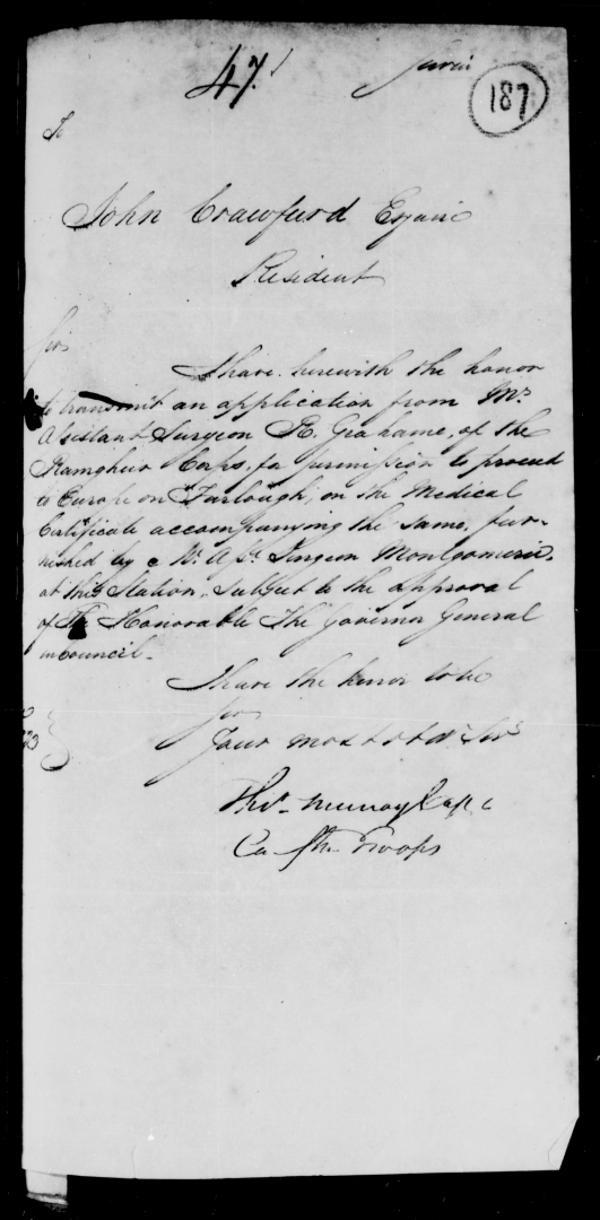 47.
187
To
John Crawfurd Esquire
Resident
Sir
I have herewith the honor
to transmit an application from Mr.
Assistant Surgeon R. Grahame, of the
Ramghur Corps, for permission to proceed
to Europe on Furlough, on the Medical
Certificate accompanying the same, fur-
nished by Mr. Asst. Surgeon Montgomerie,
at this Station, subject to the approval
of The Honorable The Governor General
in Council.
I have the honor to be
Sir
Your most obdt. Servt.
Thos. Murray Capt.
Cg the Troops